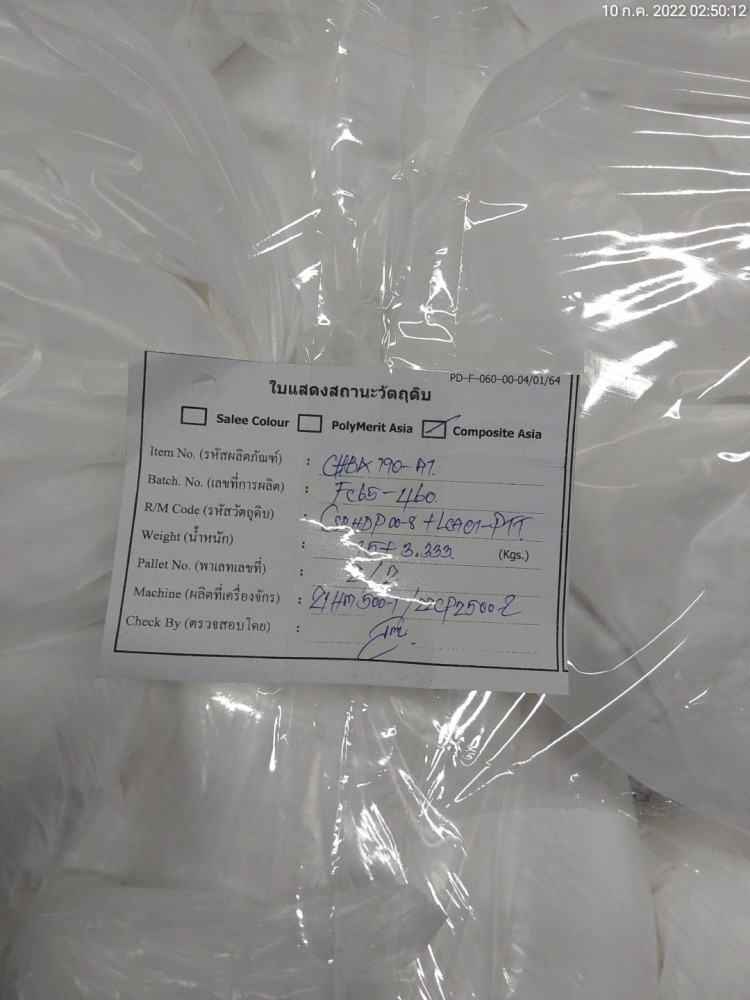 10 ก.ค. 2022 02:50:12
PD-F-060-00-04/01/64
ใบแสดงสถานะวัตถุดิบ
Salee Colour PolyMerit Asia Composite Asia
Item No. (รหัสผลิตภัณฑ์) : CHBA 790-A1
Batch. No. (เลขที่การผลิต) : FC65-460
R/M Code (รหัสวัตถุดิบ) : +LCA01-PTT
Weight (น้ำหนัก) : 15+3.333 (Kgs.)
Pallet No. (พาเลทเลขที่) : 2/2
Machine (ผลิตที่เครื่องจักร) : 21HM500-1/22CP2500-2
Check By (ตรวจสอบโดย) :